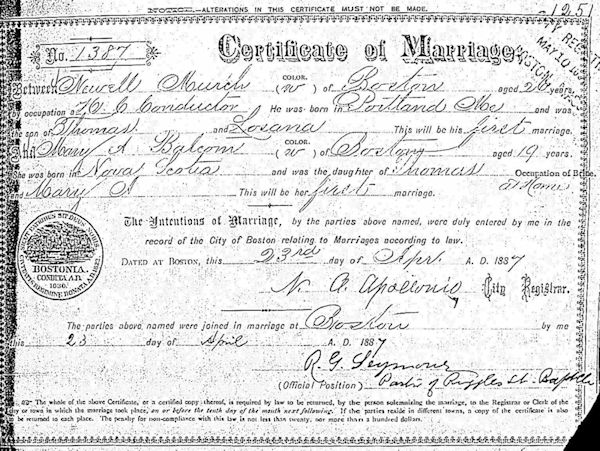 NOTICE.—ALTERATIONS IN THIS CERTIFICATE MUST NOT BE MADE.
1251
No. 1387 Certificate of Marriage.
CITY REGISTRAR
MAY 10
BOSTON, MASS.
Between Newell Murch COLOR. (w) of Boston aged 20 years,
by occupation of H. C. Conductor He was born in Portland Me and was
the son of Thomas and Losana This will be his first marriage.
And Mary A Balcom COLOR. (w) of Boston aged 19 years.
She was born in Nova Scotia and was the daughter of Thomas Occupation of Bride.
and Mary A This will be her first marriage. At Home
The Intentions of Marriage, by the parties above named, were duly entered by me in the
record of the City of Boston relating to Marriages according to law.
DATED AT BOSTON, this 23rd day of April A. D. 1887
N. A. Apollonio City Registrar.
BOSTONIA.
CONDITA A.D.
1630.
The parties above named were joined in marriage at Boston by me
this 23 day of April A. D. 1887
R. G. Seymour
(Official Position) Pastor of Ruggles St. Baptist
The whole of the above Certificate, or a certified copy thereof, is required by law to be returned, by the person solemnizing the marriage, to the Registrar or Clerk of the
city or town in which the marriage took place, on or before the tenth day of the month next following. If the parties reside in different towns, a copy of the certificate is also
to be returned to each place. The penalty for non-compliance with this law is not less than twenty, nor more than a hundred dollars.